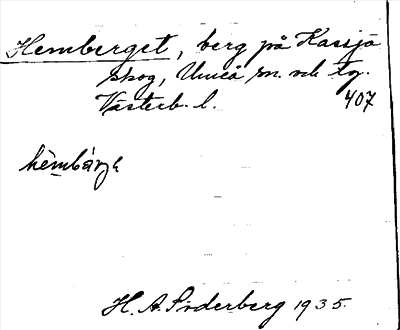 Hemberget, berg på Kassjö
skog, Umeå sn. och tg.
Västerb. l. 407
hèmbárjə
H. A. Söderberg 1935.